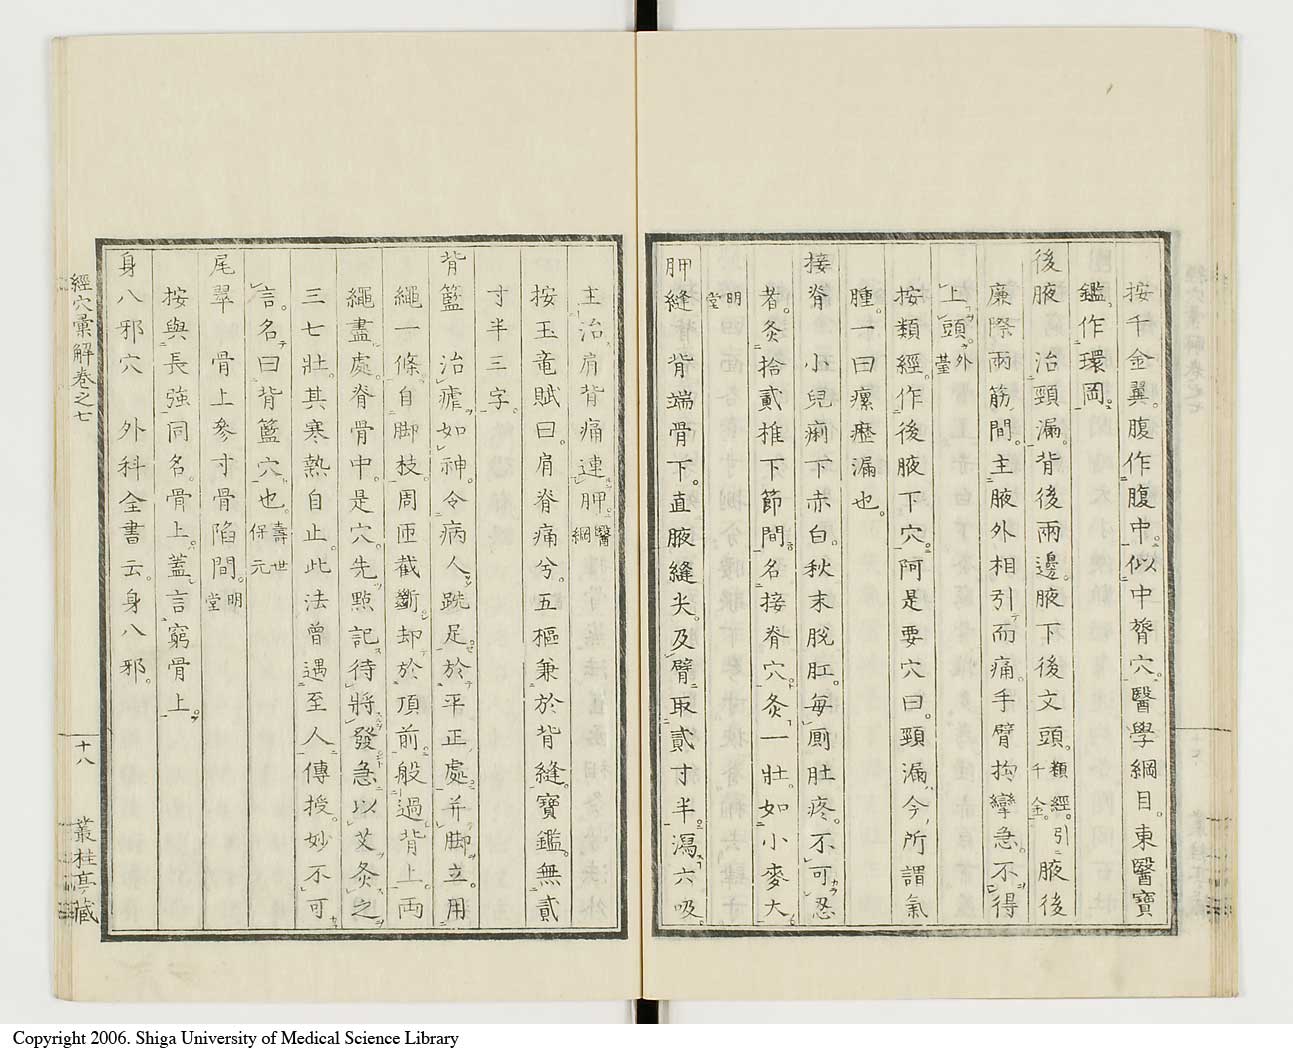 按千金翼。腹作腹中。似中膂穴。醫學綱目。東醫寶
鑑。作環岡。
後腋　治頸漏。背後兩邊。腋下後文頭。類經。千金。引腋後
廉際兩筋間。主腋外相引而痛。手臂拘攣急。不得
上頭。外臺
按類經。作後腋下穴。阿是要穴曰。頸漏。今所謂氣
腫。一曰瘰癧漏也。
接脊　小兒痢下赤白。秋末脫肛。每厠肚疼。不可忍
者。灸拾貳椎下節間。名接脊穴。灸一壯。如小麥大
明堂
胛縫　背端骨下。直腋縫尖。及臂。取貳寸半。瀉六吸。
主治肩背痛連胛。醫綱
按玉竜賦曰。肩脊痛兮。五樞兼於背縫。寶鑑。無貳
寸半三字。
背籃　治瘧如神。令病人跣足。於平正處。并脚立。用
繩一條。自脚枝。周匝截斷。却於頂前。般過背上。兩
繩盡處。脊骨中。是穴。先點記。待將發急。以艾灸之
三七壯。其寒熱自止。此法曾遇至人。傳授。妙不可
言。名曰背籃穴也。壽世保元
尾翠　骨上參寸骨陷間。明堂
按與長強同名。骨上。蓋言窮骨上。
身八邪穴　外科全書云。身八邪。
經穴彙解卷之七
十八
叢桂亭藏
Copyright 2006. Shiga University of Medical Science Library